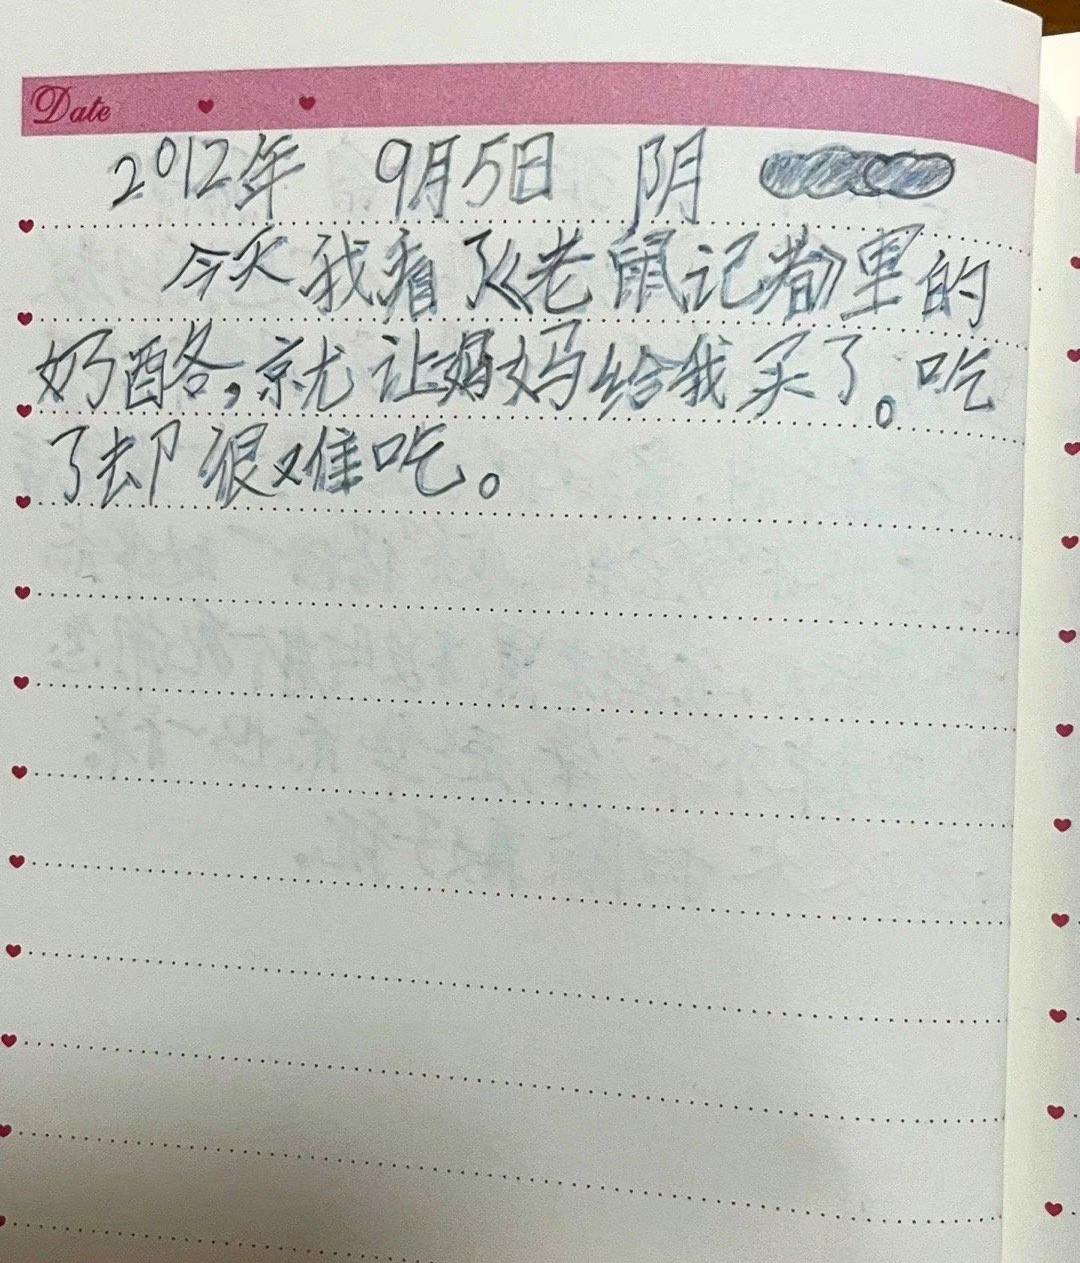 Date
2012年 9月5日 阴
今天我看了《老鼠记者》里的
奶酪,就让妈妈给我买了。吃
了却很难吃。